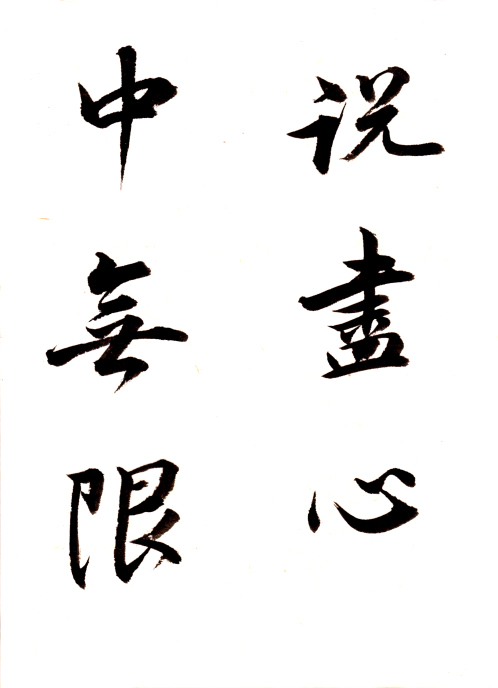 说盡心
中無限